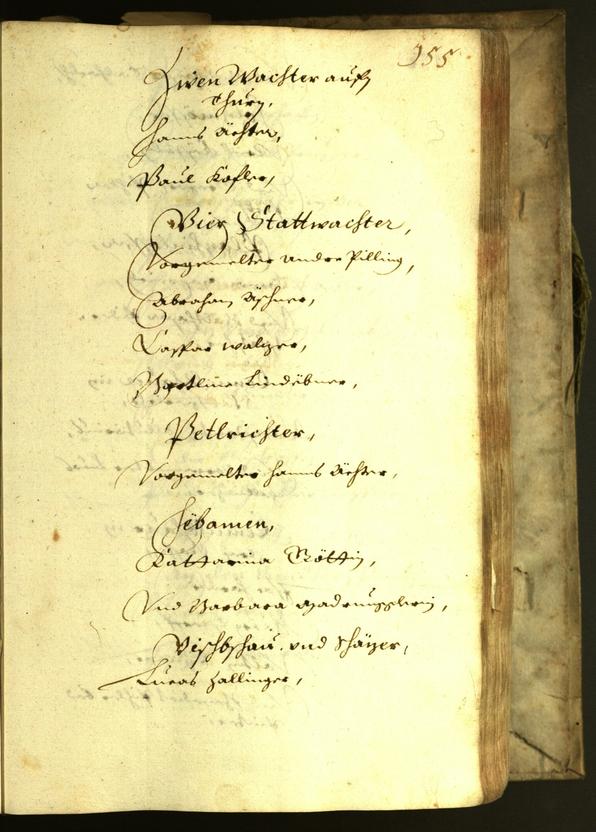 955
Zwen Wachter aufm
Thurn,
Hanns Ächter,
Paul Kofler,
Vier Stattwachter,
Vorgemelter Andre Pilling,
Abraham Äschner,
Caspar Walzer,
Bartlme Lindebner,
Petlrichter,
Vorgemelter Hanns Ächter,
Hëbamen,
Katharina Röttin,
Vnd Barbara
Vischbschau vnd Schäzer,
Lucas Hallinger,